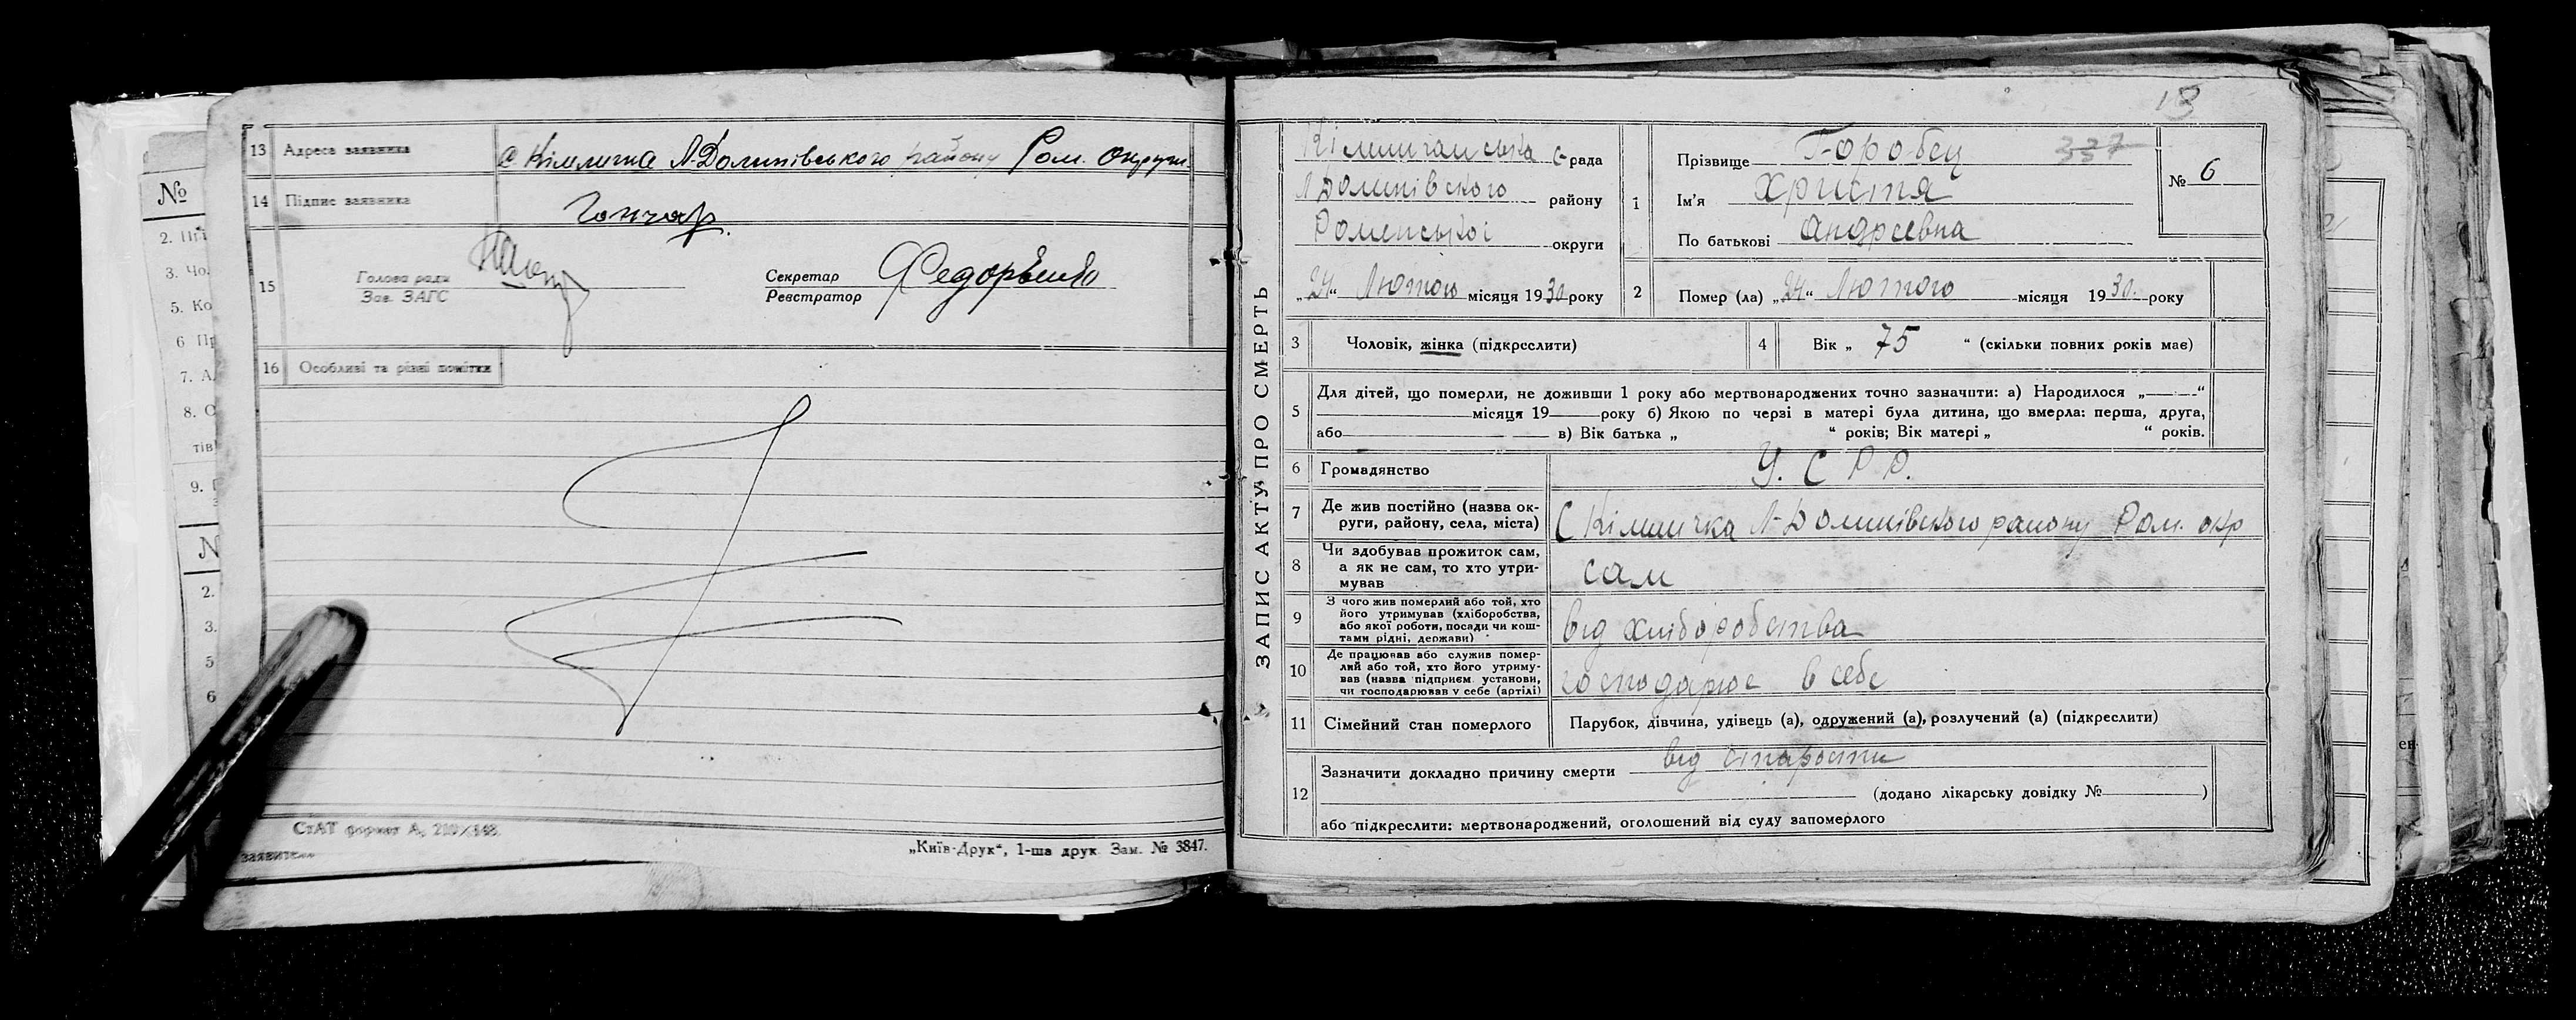 13 Адреса заявника с. Кімличка Л-Долинівського району Ром. округи.
14 Підпис заявника Гончар.
15 Голова ради
Зав. ЗАГС
Секретар
Реєстратор Федорченко
16 Особливі та різні помітки
СтАТ формат А, 210×148.
„Київ-Друк“, 1-ша друк. Зам. № 3847.
заявител
№
2.
3. Чо
5. Ко
6 Пр
7. А
8. С
тів
9.
N
2.
3.
5
6
13
ЗАПИС АКТУ ПРО СМЕРТЬ
Кімличанська с-рада
Л Долинівського району
Роменської округи
„24“ Лютого місяця 1930 року
1 Прізвище Горобец 337
Ім'я Христя
По батькові Андреевна
№ 6
2 Помер (ла) „24“ Лютого місяця 1930. року
3 Чоловік, жінка (підкреслити)
4 Вік „ 75 “ (скільки повних років має)
5 Для дітей, що померли, не доживши 1 року або мертвонароджених точно зазначити: а) Народилося „——“
місяця 19 —— року б) Якою по черзі в матері була дитина, що вмерла: перша, друга,
або —— в) Вік батька „ “ років; Вік матері „ “ років.
6 Громадянство У. С Р Р.
7 Де жив постійно (назва ок-
руги, району, села, міста) С Кімличка Л-Долинівського району Ром. окр
8 Чи здобував прожиток сам,
а як не сам, то хто утри-
мував сам
9 З чого жив померлий або той, хто
його утримував (хліборобства,
або якої роботи, посади чи кош-
тами рідні, держави) від хліборобства
10 Де працював або служив помер-
лий або той, хто його утриму-
вав (назва підприєм. установи,
чи господарював у себе (артілі) господарює в себе
11 Сімейний стан померлого Парубок, дівчина, удівець (а), одружений (а), розлучений (а) (підкреслити)
12 Зазначити докладно причину смерти від старости
(додано лікарську довідку № —— )
або підкреслити: мертвонароджений, оголошений від суду запомерлого